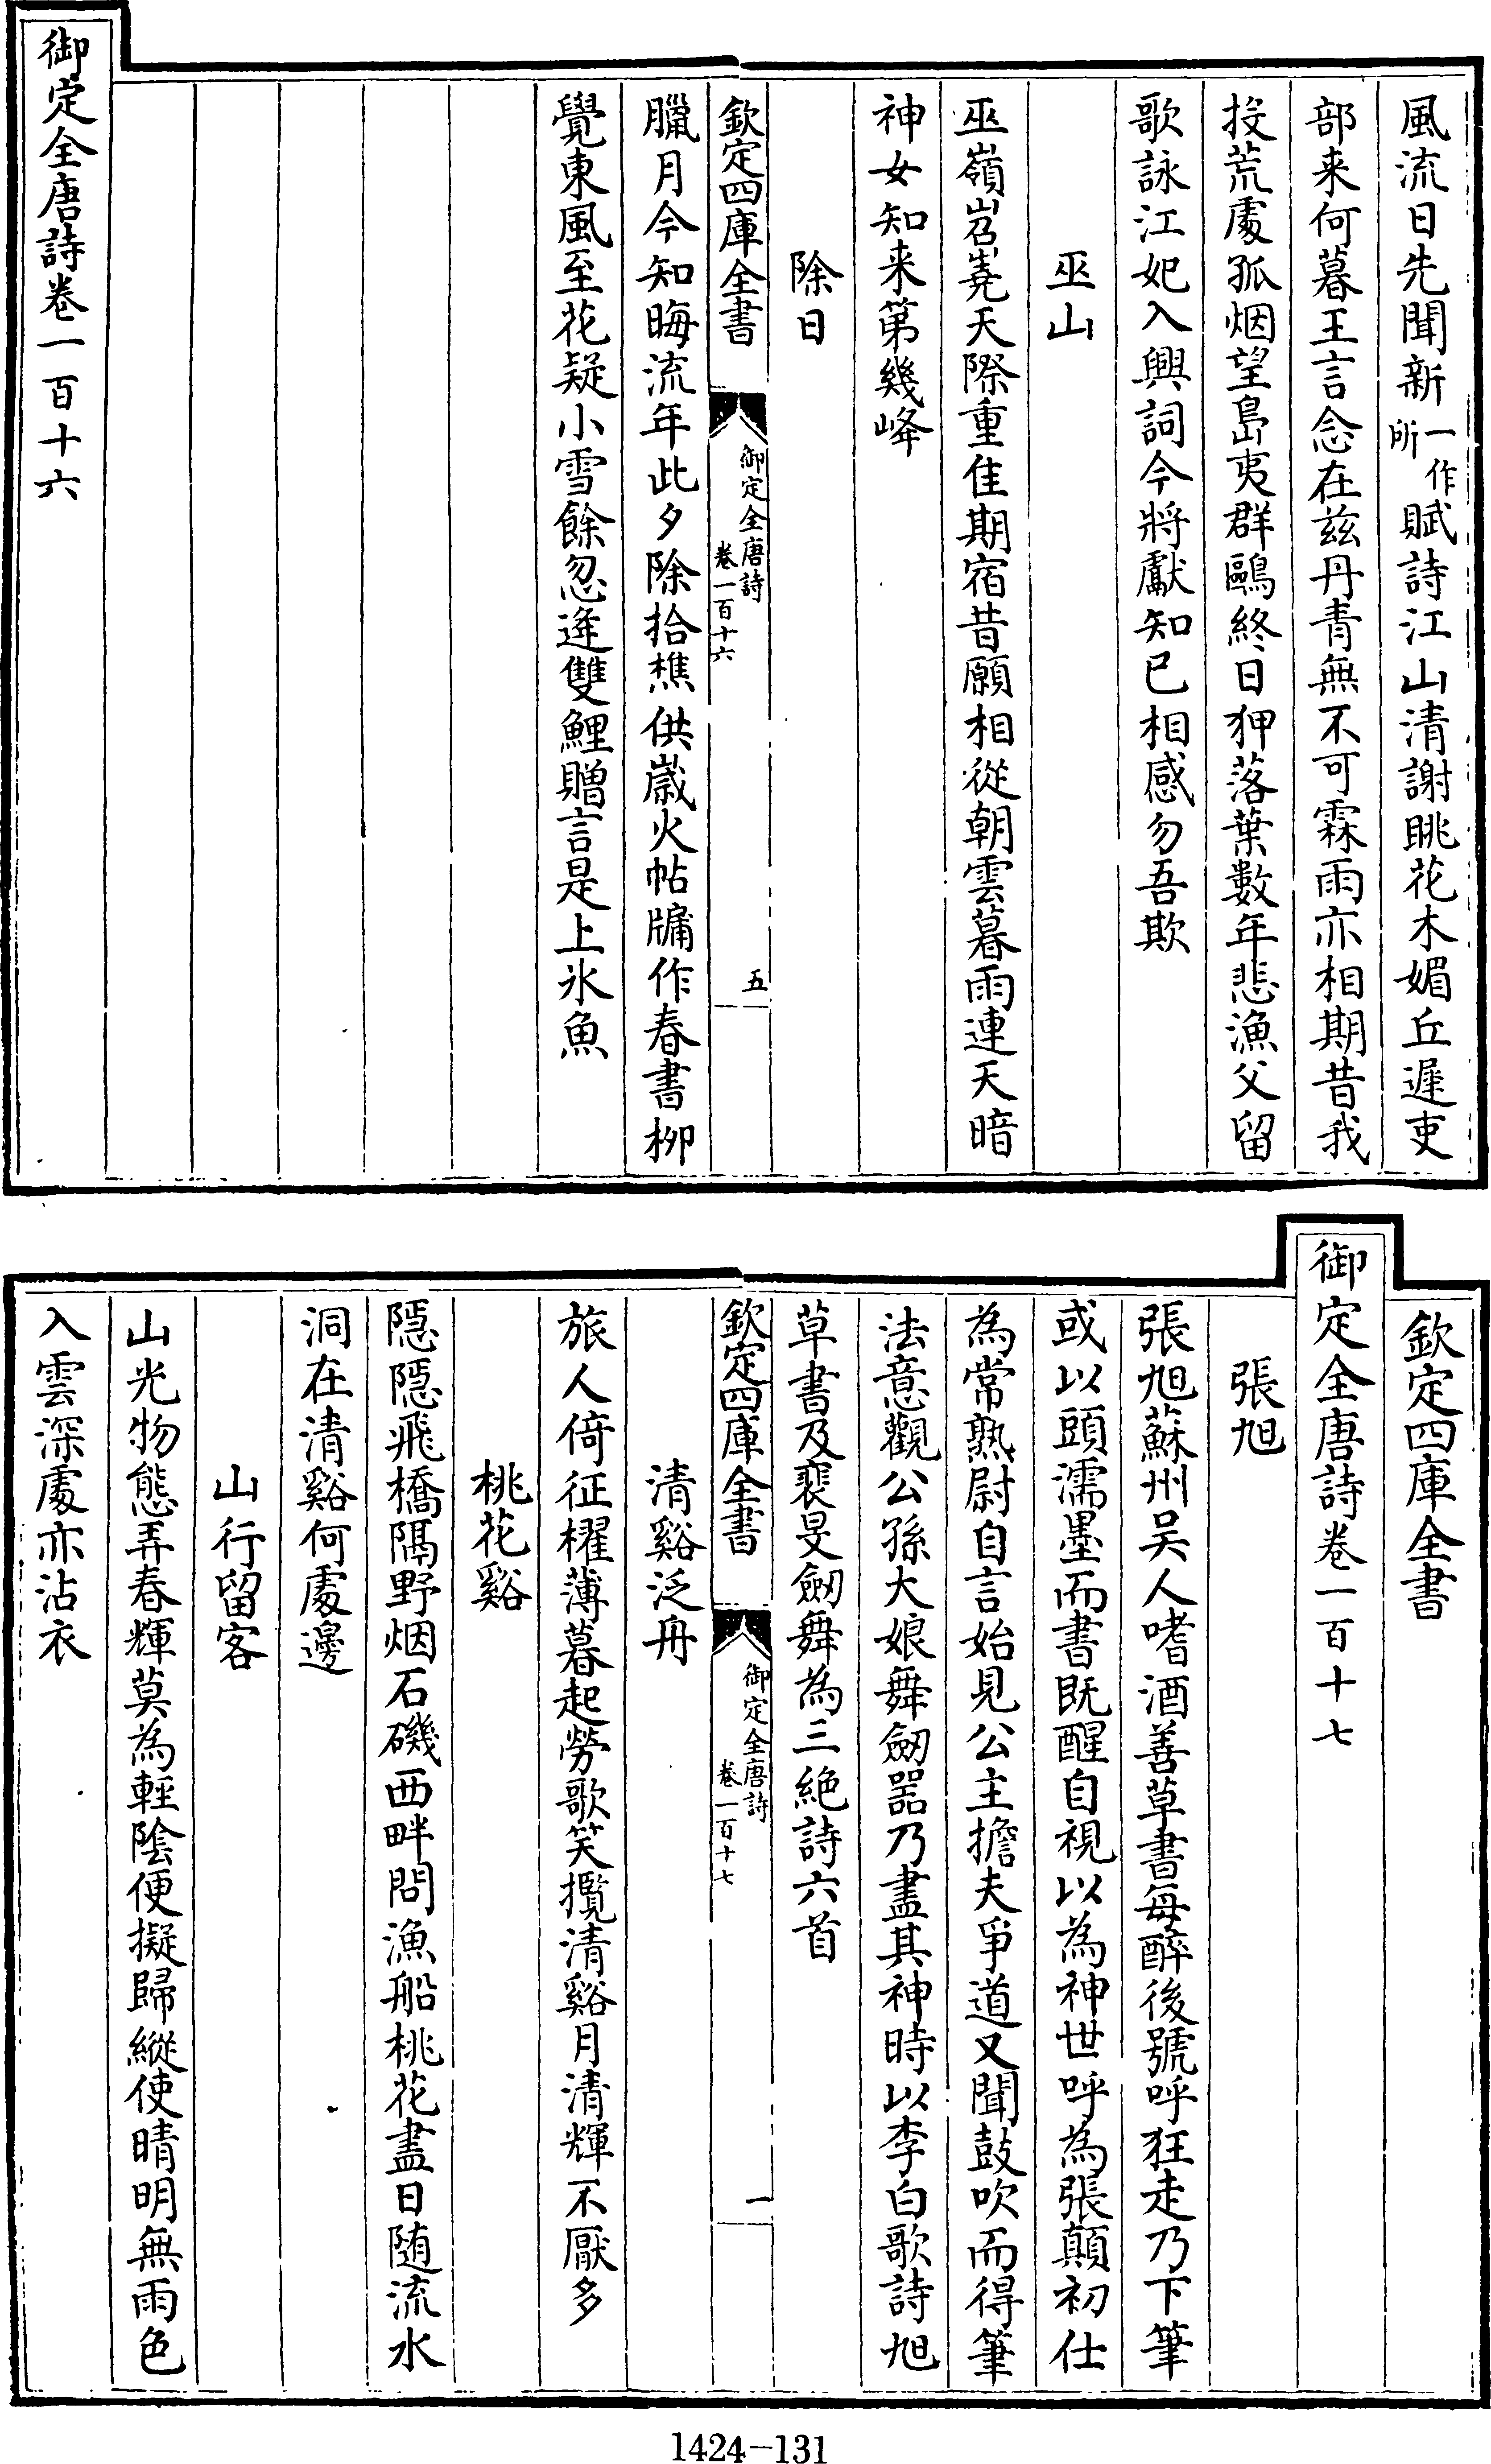 風流日先聞新一作所賦詩江山清謝眺花木媚丘遲吏
部来何暮王言念在兹丹青無不可霖雨亦相期昔我
投荒處孤烟望島夷群鷗終日狎落葉數年悲漁父留
歌詠江妃入興詞今將獻知已相感勿吾欺
巫山
巫嶺岧嶤天際重佳期宿昔願相從朝雲暮雨連天暗
神女知来第幾峰
除日
欽定四庫全書
御定全唐詩
卷一百十六
五
臘月今知晦流年此夕除拾樵供歲火帖牖作春書栁
覺東風至花疑小雪餘忽逢雙鯉贈言是上氷魚
御定全唐詩卷一百十六
欽定四庫全書
御定全唐詩卷一百十七
張旭
張旭蘇州吳人嗜酒善草書每醉後號呼狂走乃下筆
或以頭濡墨而書既醒自視以為神世呼為張顛初仕
為常熟尉自言始見公主擔夫爭道又聞鼓吹而得筆
法意觀公孫大娘舞劒器乃盡其神時以李白歌詩旭
草書及裴旻劒舞為三絶詩六首
清谿泛舟
欽定四庫全書
御定全唐詩
卷一百十七
一
旅人倚征櫂薄暮起勞歌笑攬清谿月清輝不厭多
桃花谿
隱隱飛橋隔野烟石磯西畔問漁船桃花盡日随流水
洞在清谿何處邊
山行留客
山光物態弄春輝莫為輕陰便擬歸縱使晴明無雨色
入雲深處亦沾衣
1424-131